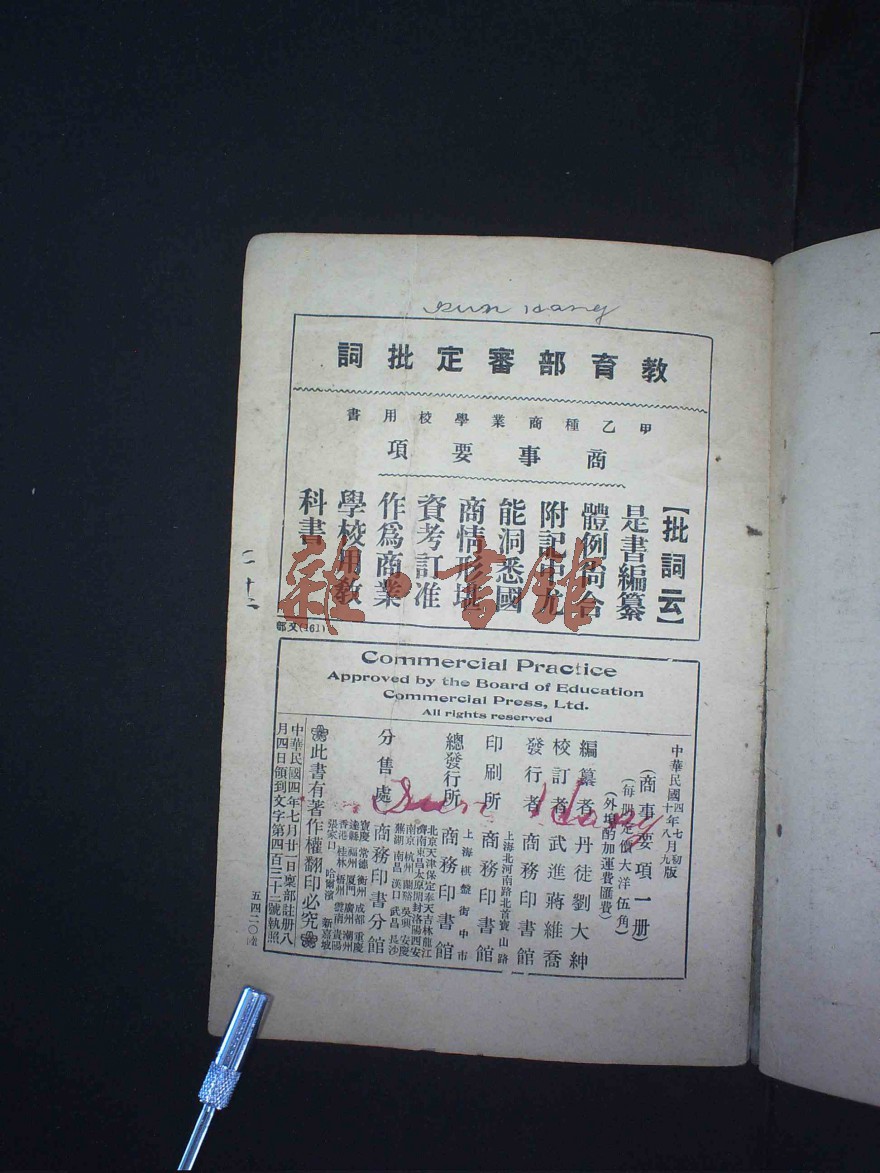 Sun Hang
教育部審定批詞
甲乙種商業學校用書
商事要項
【批詞云】
是書編纂
體例尚合
附記中尤
能洞悉國
商情形堪
資考訂准
作爲商業
學校用教
科書
雜·書館
文(161)部
Commercial Practice
Approved by the Board of Education
Commercial Press, Ltd.
All rights reserved
中華民國四年七月初版
(商事要項一册)
(每册定價大洋伍角)
(外埠酌加運費匯費)
編纂者 丹徒劉大紳
校訂者 武進蔣維喬
發行者 商務印書館
上海北河南路北首寶山路
印刷所 商務印書館
上海棋盤街中市
總發行所 商務印書館
北京天津保定奉天吉林龍江
濟南東昌太原開封洛陽西安
南京杭州蘭谿吳興安慶
蕪湖南昌漢口武昌長沙
分售處 商務印書分館
寶慶常德衡州成都重慶
達縣福州厦門廣州潮州
香港桂林梧州雲南貴陽
張家口 哈爾濱 新嘉坡
此書有著作權翻印必究
中華民國四年七月廿一日稟部註册八
月四日領到文字第四百三十二號執照
Sun Hang